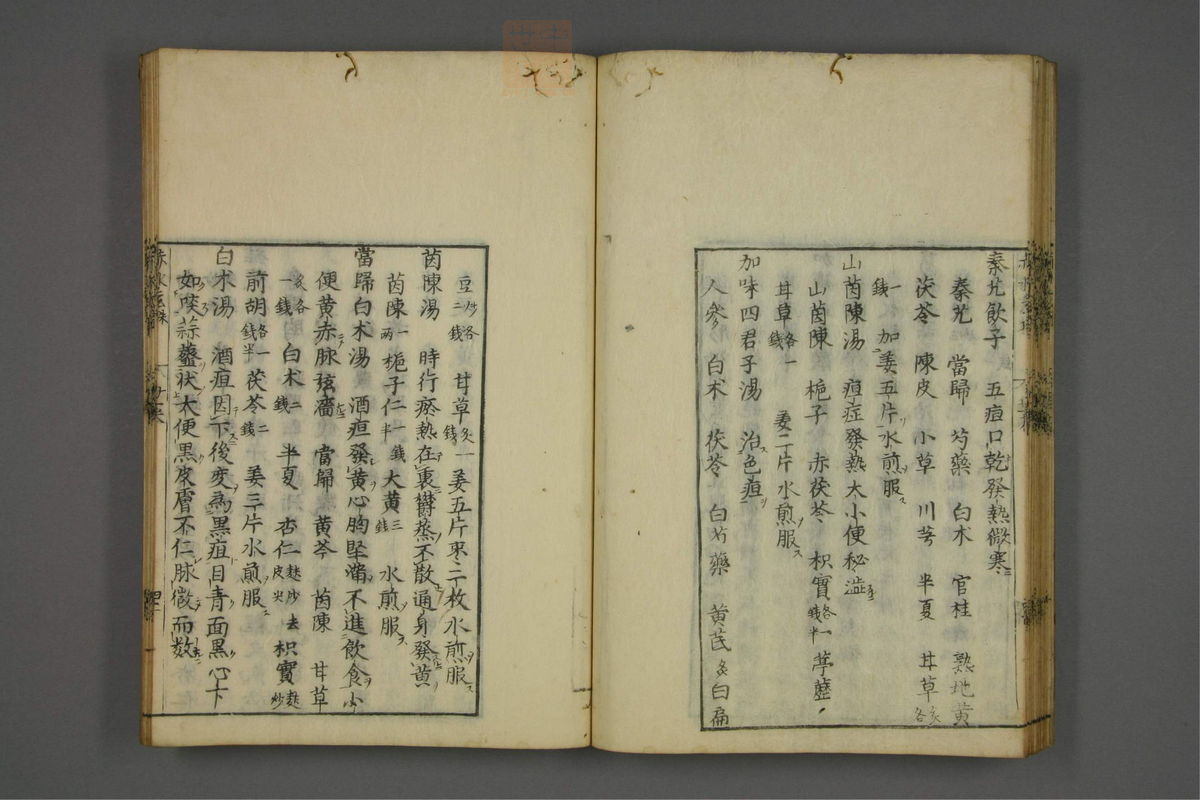 秦艽飲子 五疸口乾發熱微寒
秦艽 當歸 芍藥 白术 官桂 熟地黄
茯苓 陳皮 小草 川芎 半夏 甘草炙各
一錢 加姜五片水煎服
山茵陳湯 疸症發熱大小便秘澁
山茵陳 梔子 赤茯苓 枳實各一錢半 葶藶
甘草各一錢 姜二片水煎服
加味四君子湯 治色疸
人參 白术 茯苓 白芍藥 黄芪炙 白扁
豆炒各二錢 甘草炙一錢 姜五片枣二枚水煎服
茵陳湯 時行瘀熱在裏欝蒸不散通身發黄
茵陳一兩 梔子仁一錢半 大黄三錢 水煎服
當歸白术湯 酒疸發黄心胸坚滿不進飲食小
便黄赤脉弦濇 當歸 黄芩 茵陳 甘草
炙各一錢 白术二錢 半夏 杏仁麩炒去皮尖 枳實麩炒
前胡各一錢半 茯苓二錢 姜三片水煎服
白术湯 酒疸因下後变為黒疸目青面黒心下
如啖蒜虀状大便黒皮膚不仁脉微而数